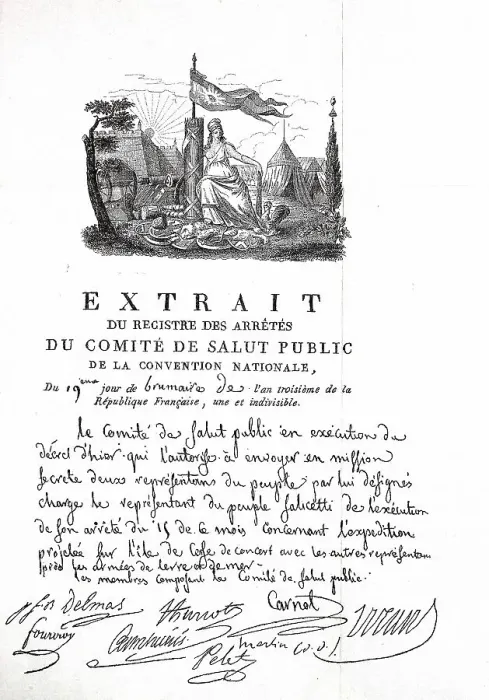 EXTRAIT
DU REGISTRE DES ARRÊTÉS
DU COMITÉ DE SALUT PUBLIC
DE LA CONVENTION NATIONALE,
Du 19ème jour de brumaire de l'an troisième de la
République Française, une et indivisible.
le Comité de salut public en exécution du
décret d'hier qui l'autorise à envoyer en mission
secrete deux représentans du peuple par lui désignés
charge le représentant du peuple salicetti de l'exécution
de son arrêté du 15 de ce mois concernant l'expédition
projetée sur l'ile de Corse de concert avec les autres représentans
près les armées de terre et de mer.
les membres composant le Comité de salut public.
Delmas Thuriot Carnot
fourcroy Cambacérès merlin (d. d.)
Pelet